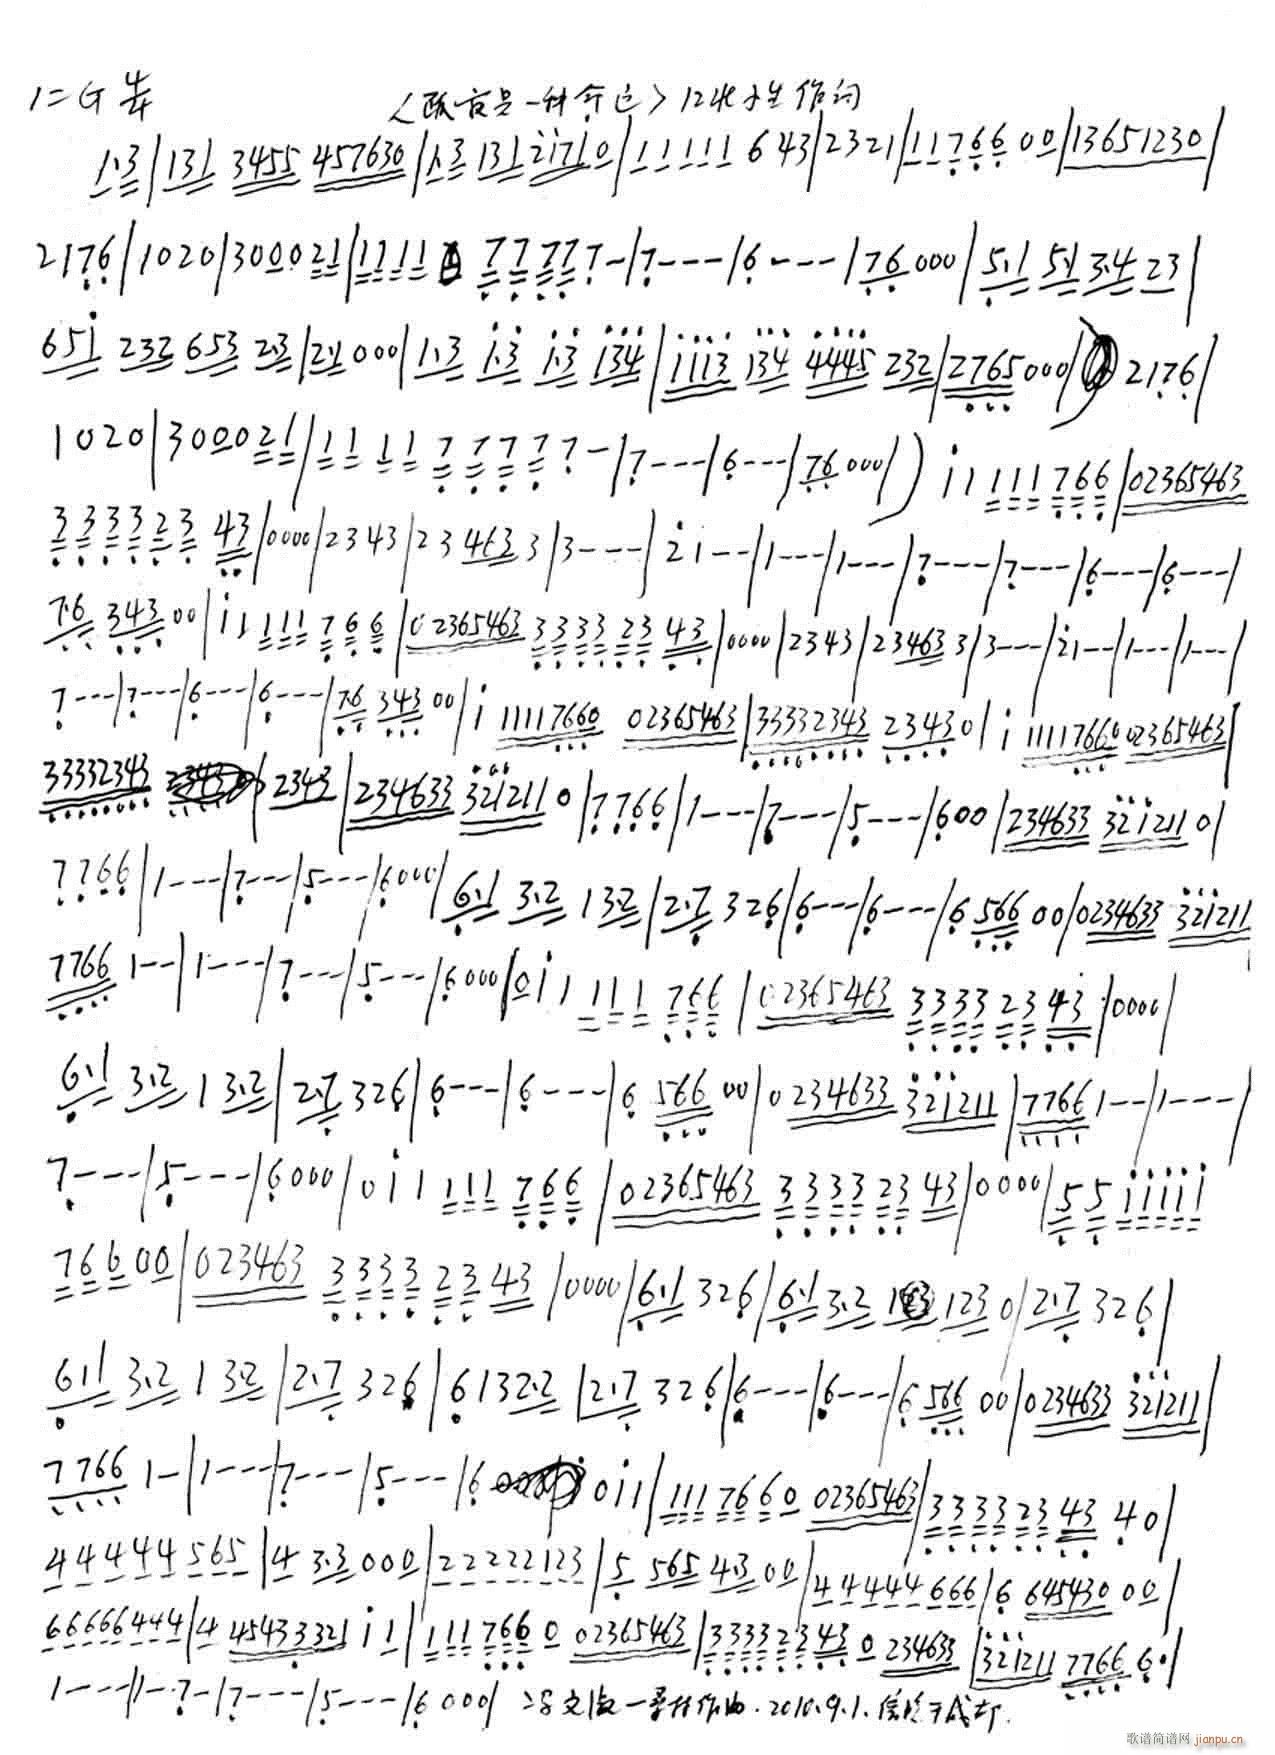 1=G
1·3 | 131 3455 457630 | 1·3 131 21710 | 11111 643 | 2321 | 11766 00 | 13651230 |
2176 | 1020 | 300021 | 1111 77777- | 7---- | 6---- | 76000 | 5·1 5·1 3·4 23 |
651 232 653 2·3 | 2·1 000 | 1·3 1·3 1·3 134 | 1113 134 4445 232 | 2765000 | 2176 |
1020 | 300021 | 11 11 77777- | 7---- | 6--- | 76000 | ) 11 111 766 | 02365463
333323 43 | 0000 | 2343 | 23 463 3 | 3---- | 21-- | 1--- | 1--- | 7---- | 7---- | 6---- | 6---- |
7·6 343 00 | 11 111 766 | 02365463 3333 23 43 | 0000 | 2343 | 23463 3 | 3--- | 21-- | 1--- | 1--- |
7---- | 7---- | 6---- | 6---- | 7·6 343 00 | 1 11117660 02365463 | 33332343 23430 | 1 11117660 02365463 |
33332343 | 2343 | 234633 321211 0 | 7766 | 1---- | 7---- | 5---- | 600 | 234633 321211 0 |
7766 | 1---- | 7---- | 5---- | 6000 | 6·1 3·2 13·2 | 2·7 326 | 6---- | 6---- | 6 566 00 | 0234633 321211
7766 1-- | 1---- | 7---- | 5---- | 6000 | 011 111 766 | 02365463 3333 23 43 | 0000 |
6·1 3·2 13·2 | 2·7 326 | 6--- | 6---- | 6 566 00 | 0 234633 321211 | 7766 1-- | 1---- |
7---- | 5---- | 6000 | 011 111 766 | 02365463 3333 23 43 | 0000 | 55 11111
766 00 | 023463 3333 23 43 | 0000 | 6·1 326 | 6·1 3·2 123 0 | 2·7 326 |
6·1 3·2 13·2 | 2·7 326 | 6132·2 | 2·7 326 | 6---- | 6---- | 6 566 00 | 0234633 321211 |
7766 1- | 1---- | 7---- | 5---- | 6 011 | 111 7660 02365463 | 3333 23 43 40 |
44444 565 | 4 3·3 000 | 22222123 | 5 565 4·3 00 | 44444 666 | 6 645430 00 |
66666444 | 4 45433321 11 | 1117660 02365463 | 33332343 0 234633 | 321211 7766 6· |
1---- | 1-7- | 7---- | 5---- | 6000 作曲.2010.9.1.
歌谱简谱网 jianpu.cn